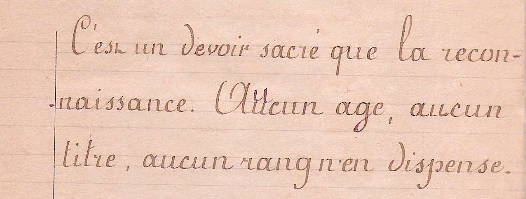 C'est un devoir sacré que la recon-
naissance. Aucun age, aucun
titre, aucun rang n'en dispense.